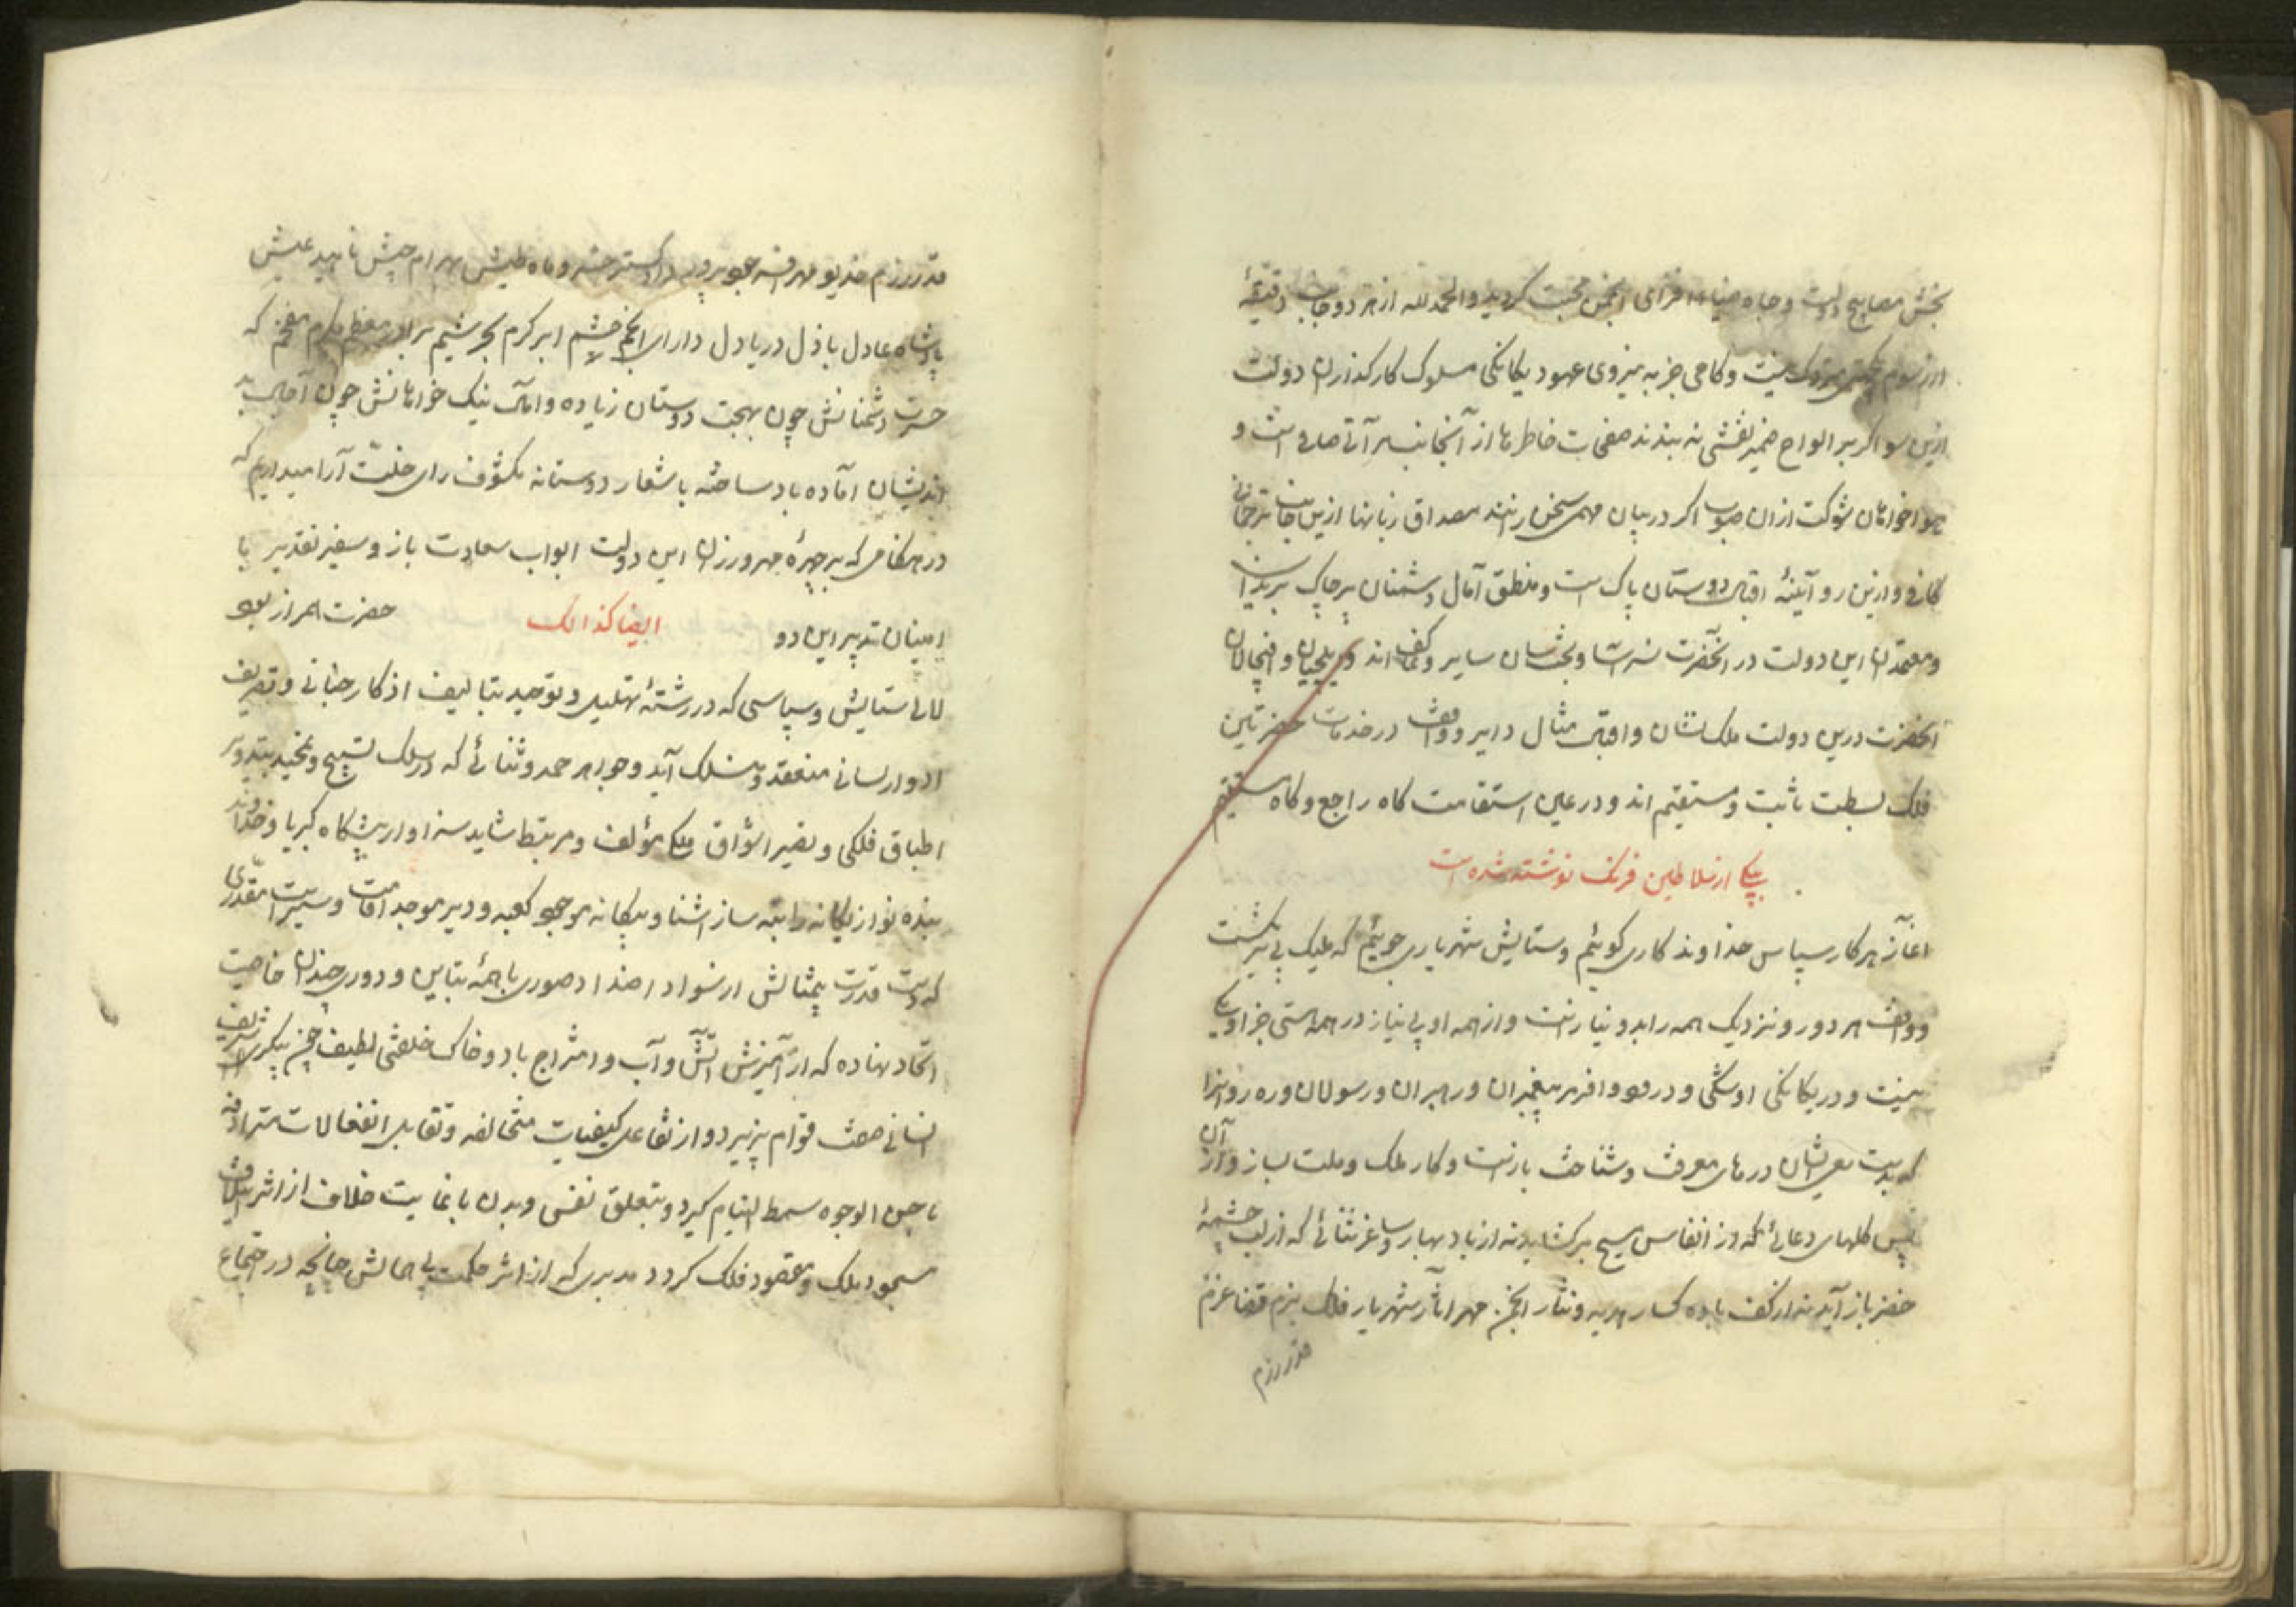 بخش مصابیح دولت و جاه ضیاء افزای انجمن محبت کردید والحمدلله از هر دو جانب دقیقهٔ
از رسوم متروک نیست و کامی جز به نیروی عهود یکانکی مسلوک کارکذاران دولت
ازین سو اکر بر الواح ضمیر نقشی نه بندند صفحات خاطرها از آنجانب مرآتی صافی است و
هواخواهان شوکت ازان صوب اکر در بیان مهمی سخن رانند مصداق زبانها ازین جانب ترجمانی
کافی و ازین رو آئینهٔ اقبال دوستان پاک است و منطق آمال دشمنان بر چاک
و معتمدان این دولت در آنحضرت و ایلچیان و
آنحضرت درین دولت ملک نشان و اقبال مثال دایر و واقف در خدمات حضرتین
فلک بسطت ثابت و مستقیم اند و در عین استقامت کاه راجع و کاه مستقیم
بیکی از سلاطین فرنک نوشته شده است
آغاز هر کار سپاس خداوند کاری کوئیم و ستایش شهریاری جوئیم که ملیک بی
و واقف هر دور و نزدیک همه را بدو نیاز است و از همه او بی نیاز در همه هستی جز او یکی
نیست و در یکانکی او شکی و درود وافر بر پیغمبران و رهبران و رسولان و ره روانرا
که بدست سعی ایشان درهای معرفت و شناخت باز است و کار ملک و ملت بساز و از آن
پس کلهای دعائی که از انفاس مسیح برکشاید نه از باد بهار و ساغر ثنائی که از لب چشمهٔ
خضر باز آید نه از کف باده کسار هدیه و نثار انجمن مهر آثار شهریار فلک بزم قضا عزم
قدر رزم
قدر رزم خدیو مهر افسر دادکستر خسرو ماه طیش بهرام جیش ناهید عیش
پادشاه عادل باذل دریا دل دارای انجم حشم ابر کرم بحر شیم برادر معظم مکرم مفخم که
حسرت دشمنانش چون بهجت دوستان زیاده و امانی نیک خواهانش چون آمال بد
اندیشان آماده باد ساخته باشعار دوستانه مکشوف رای خلت آرا میداریم که
در هنکامی که بر چهرهٔ مهرورزان این دولت ابواب سعادت باز و سفیر تقدیر با
امینان تدبیر این دو حضرت همراز بود
ایضا کذالک
لآلی ستایش و سپاسی که در رشتهٔ تهلیل و توحید بتالیف اذکار جنانی و تصریف
ادوار لسانی منعقد و منسلک آید و جواهر حمد و ثنائی که در سلک تسبیح و تمجید بتدویر
اطباق فلکی و ملکی مؤلف و مرتبط شاید سزاوار پیشکاه کبریا و خداوند
بنده نواز یکانه رابطه ساز آشنا و بیکانه موجود کعبه و دیر موجد آفات و سیر است مقدری
که دست قدرت بیمثالش از سواد اضداد صوری با همهٔ تباین و دوری چندان خاصیت
اتحاد نهاده که از آمیزش آتش و آب و امتزاج باد و خاک خلعتی لطیف چنین پیکر شریف
انسانی صفت قوام پذیرد و از تفاعل کیفیات متخالفه و تقابل انفعالات مترادفه
با حسن الوجوه سمط التیام کیرد و بتعلق نفس و بدن با نهایت خلاف از اثر
مسجود ملک و مقصود فلک کردد مدبری که از اثر حکمت بی همالش چنانچه در اجتماع